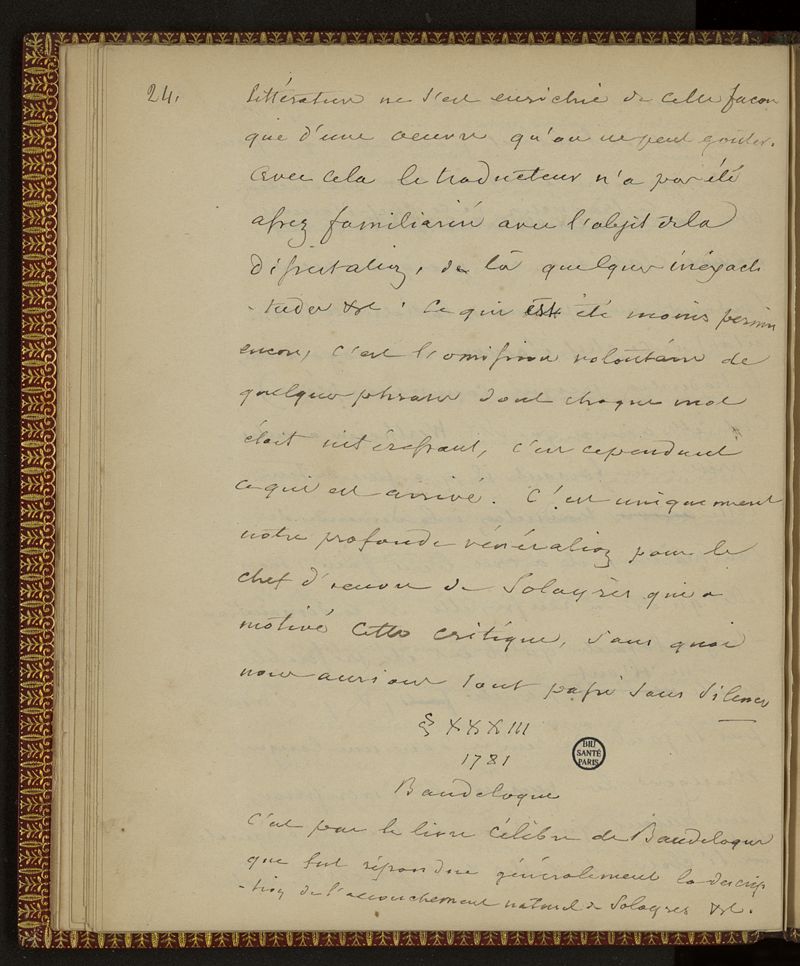 24.
littérature ne s'est enrichie de cette façon
que d'une oeuvre qu'on ne peut goûter.
Avec cela le traducteur n'a pas été
assez familiarisé avec l'objet de la
dissertation, de là quelques inéxacti
-tudes &c. Ce qui est été moins permis
encore, c'est l'omission volontaire de
quelques phrases dont chaque mot
était intéressant, c'est cependant
ce qui est arrivé. C'est uniquement
notre profonde vénération pour le
chef d'oeuvre de Solayrès qui a
motivé cette critique, sans quoi
nous aurions tout passé sous silence
§ XXXIII
1781
Baudeloque
C'est par le livre célèbre de Baudeloque
que fut répandue généralement la descrip
-tion de l'accouchement naturel de Solayres &c.
BIU
SANTÉ
PARIS